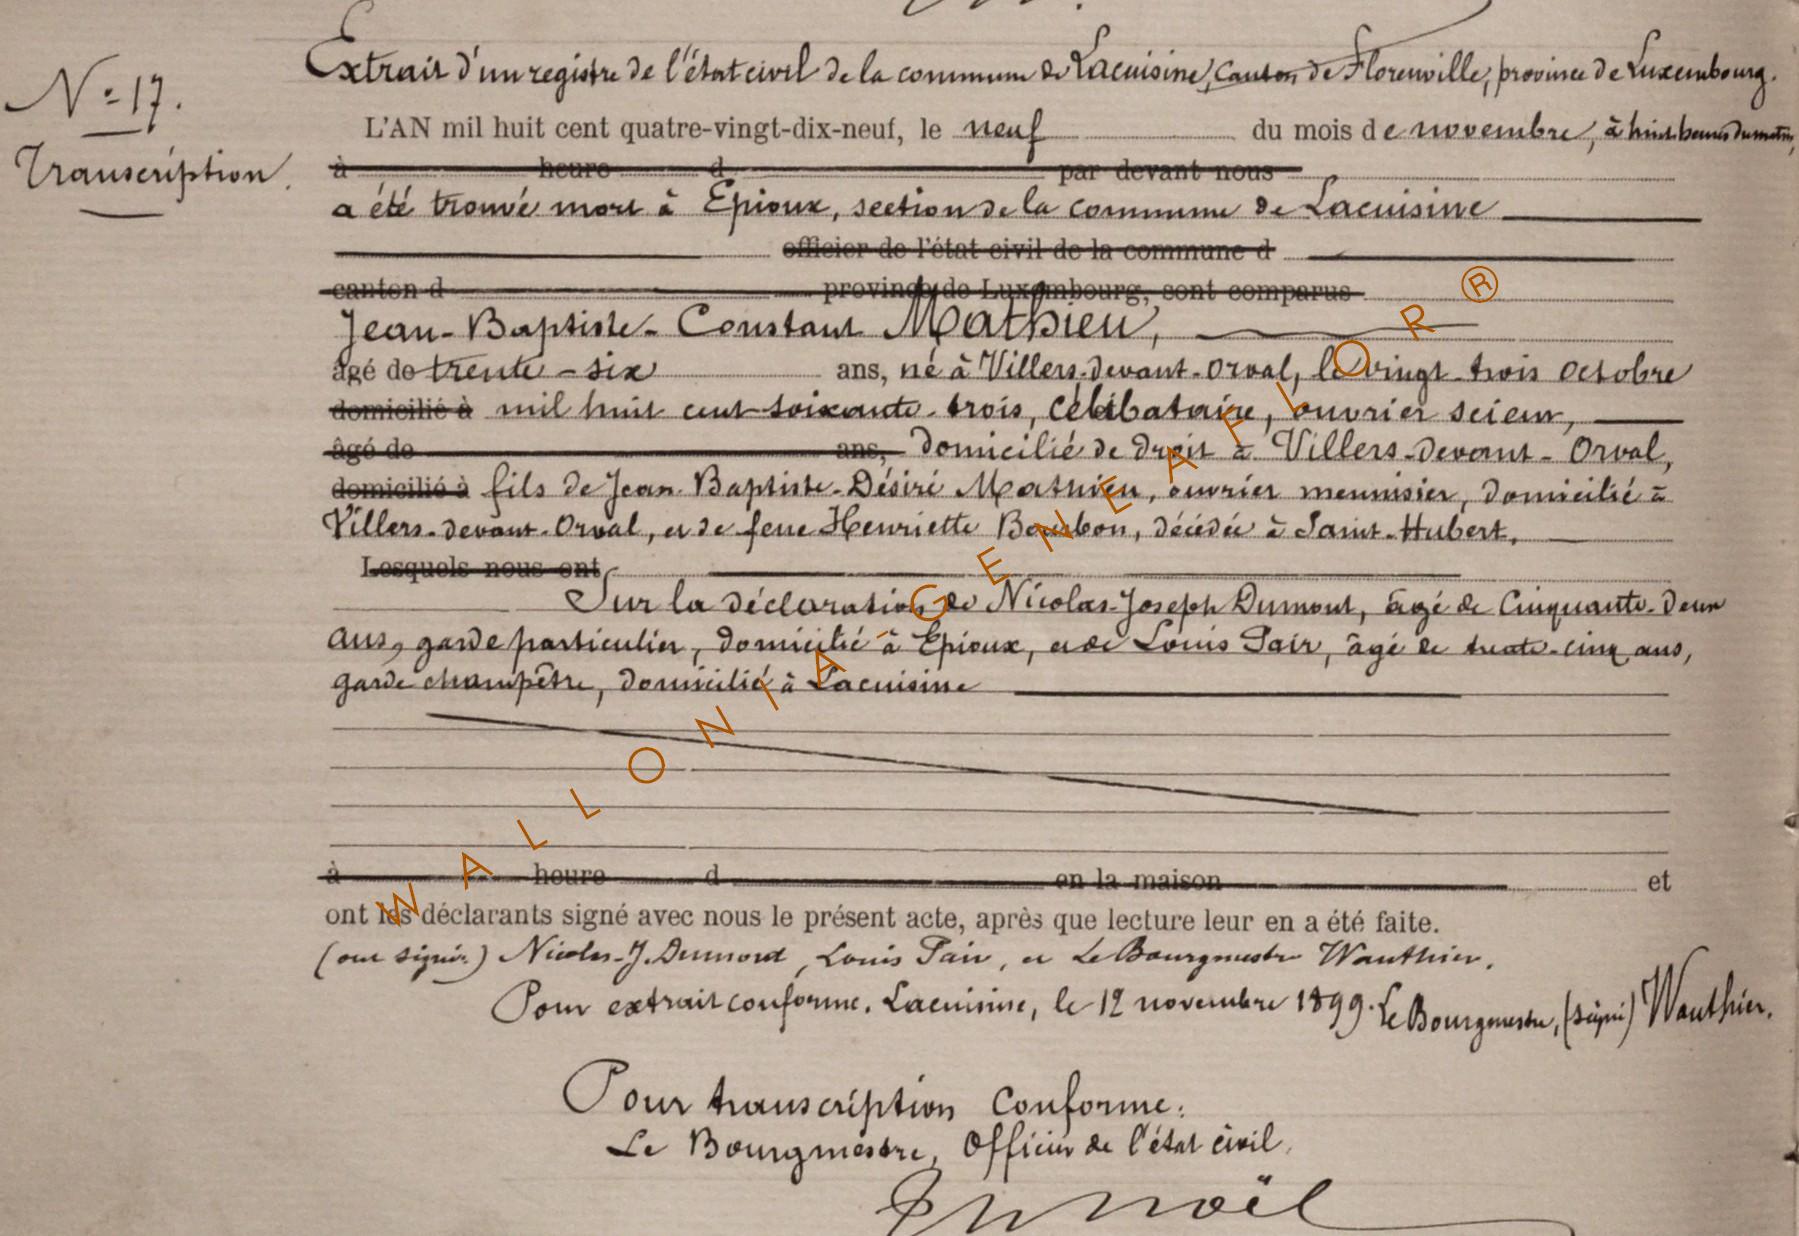 Extrait d'un registre de l'état civil de la commune de Lacuisine, Canton de Florenville, province de Luxembourg.
N° 17.
Transcription.
L'AN mil huit cent quatre-vingt-dix-neuf, le neuf du mois de novembre, à huit heures du matin,
à heure d par devant nous
a été trouvé mort à Epioux, section de la commune de Lacuisine
officier de l'état civil de la commune d
canton d province de Luxembourg, sont comparus
Jean-Baptiste-Constant Mathieu,
âgé de trente-six ans, né à Villers-devant-Orval, le vingt-trois octobre
domicilié à mil huit cent soixante-trois, célibataire, ouvrier scieur,
âgé de ans, domicilié de droit à Villers-devant-Orval,
domicilié à fils de Jean-Baptiste-Désiré Mathieu, ouvrier menuisier, domicilié à
Villers-devant-Orval, et de feue Henriette Bourbon, décédée à Saint-Hubert.
Lesquels nous ont
Sur la déclaration de Nicolas-Joseph Dumont, âgé de cinquante-deux
ans, garde particulier, domicilié à Epioux, et de Louis Pair, âgé de trente-cinq ans,
garde champêtre, domicilié à Lacuisine
à heure d en la maison et
ont les déclarants signé avec nous le présent acte, après que lecture leur en a été faite.
(ont signé) Nicolas-J. Dumont, Louis Pair, et Le Bourgmestre Wauthier.
Pour extrait conforme. Lacuisine, le 12 novembre 1899. Le Bourgmestre, (signé) Wauthier.
Pour transcription conforme:
Le Bourgmestre, Officier de l'état civil.
Noël
WALLONIA-GENEAFLOR®